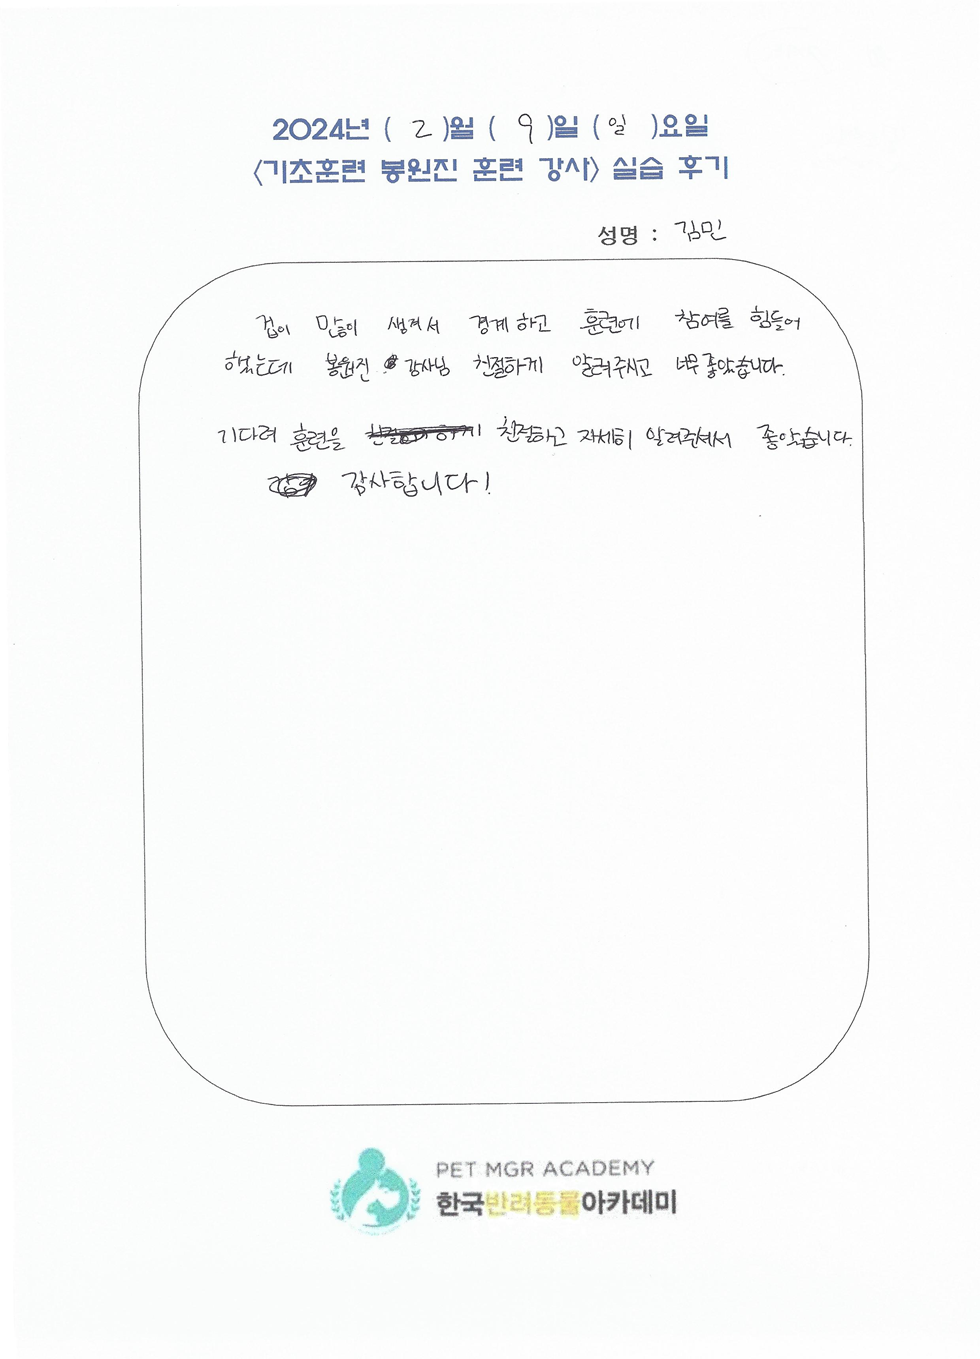 2024년 ( 2 )월 ( 9 )일 ( 일 )요일
<기초훈련 봉원진 훈련 강사> 실습 후기
성명 : 김민
겁이 많이 생겨서 경계하고 훈련에 참여를 힘들어
했었는데 봉원진 강사님 친절하게 알려주시고 너무 좋았습니다.
기다려 훈련을 친절하고 자세히 알려주셔서 좋았습니다.
감사합니다!
PET MGR ACADEMY
한국반려동물아카데미